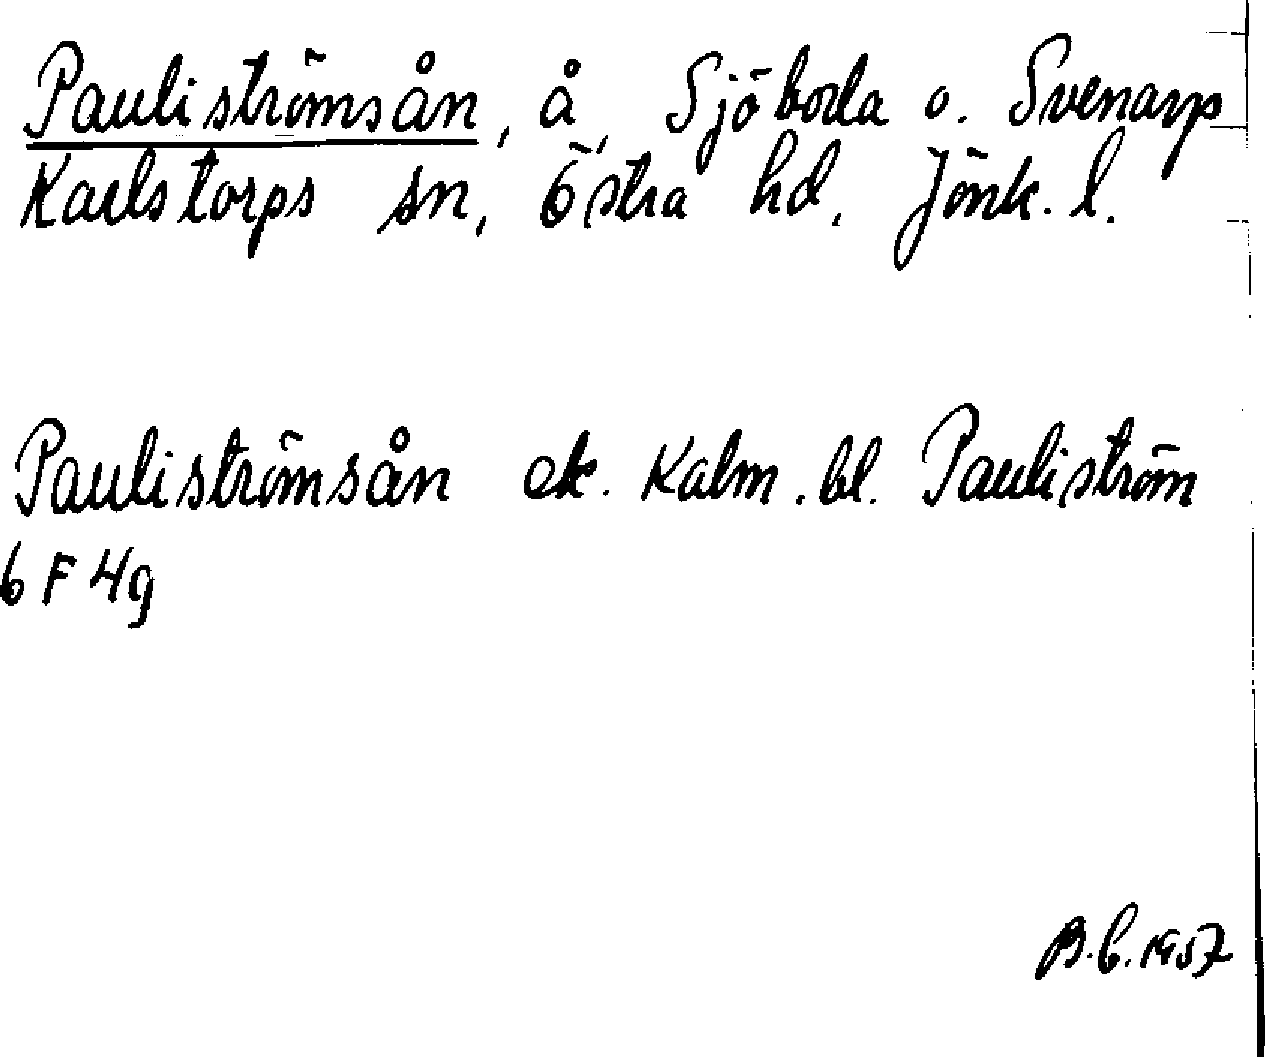 Pauliströmsån, å, Sjöboda o. Svenarp
Karlstorps sn, Östra hd, Jönk. l.
Pauliströmsån ek. Kalm. bl. Pauliström
6 F 4g
B.b. 1957